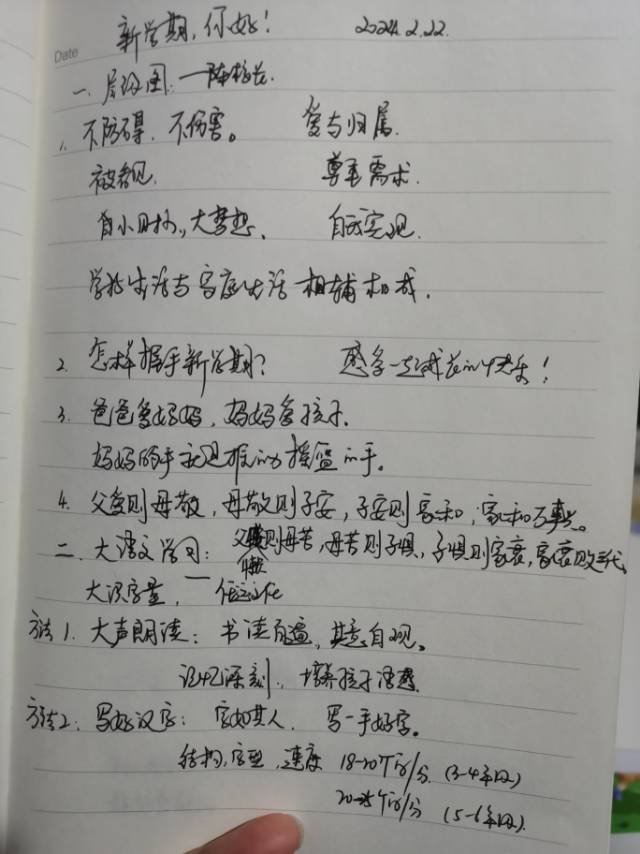 Date
新学期,你好! 2024.2.22.
一、层级图:—陈校长.
1、不防碍、不伤害。 爱与归属.
被看见. 尊重需求.
自小目标,大梦想、 自我实现.
学校生活与家庭生活 相辅相成.
2、怎样握手新学期? 感受一起成长的快乐!
3、爸爸爱妈妈,妈妈爱孩子.
妈妈的手就是推动摇篮的手。
4、父爱则母敬,母敬则子安,子安则家和,家和万事兴。
二、大语文学习: 父懒则母苦,母苦则子惧,子惧则家衰,家衰败三代.
大识字量,—
方法1、大声朗读: 书读百遍,其意自观。
记忆深刻、培养孩子语感.
方法2:写好汉字: 字如其人、写一手好字。
结构,字型,速度 18-20个字/分 (3-4年级)
20-25个字/分 (5-6年级).